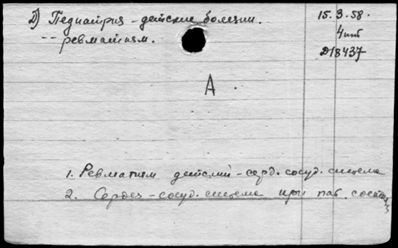 2) Педиатрия - детские болезни.
-"- ревматизм.
15.3.58.
4 шт
D18437
А
1. Ревматизм детский - серд. сосуд. система
2. Сердеч - сосуд. система при пат.